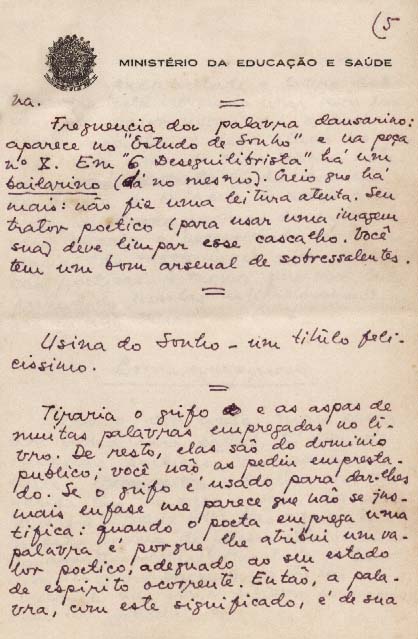 (5
MINISTÉRIO DA EDUCAÇÃO E SAÚDE
va.
Frequencia da palavra dansarino:
aparece no "Estudo de Sonho" e na peça
nº X. Em "O Desequilibrista" há um
bailarino (dá no mesmo). Creio que há
mais: não fiz uma leitura atenta. Seu
trator poetico (para usar uma imagem
sua) deve limpar esse cascalho. Você
tem um bom arsenal de sobressalentes.
Usina do Sonho - um titulo feli-
cissimo.
Tiraria o grifo e as aspas de
muitas palavras empregadas no li-
vro. De resto, elas são do dominio
publico; você não as pediu empresta-
do. Se o grifo é usado para dar-lhes
mais enfase me parece que não se jus-
tifica: quando o poeta emprega uma
palavra é porque lhe atribui um va-
lor poetico, adequado ao seu estado
de espirito ocorrente. Então, a pala-
vra, com este significado, é de sua